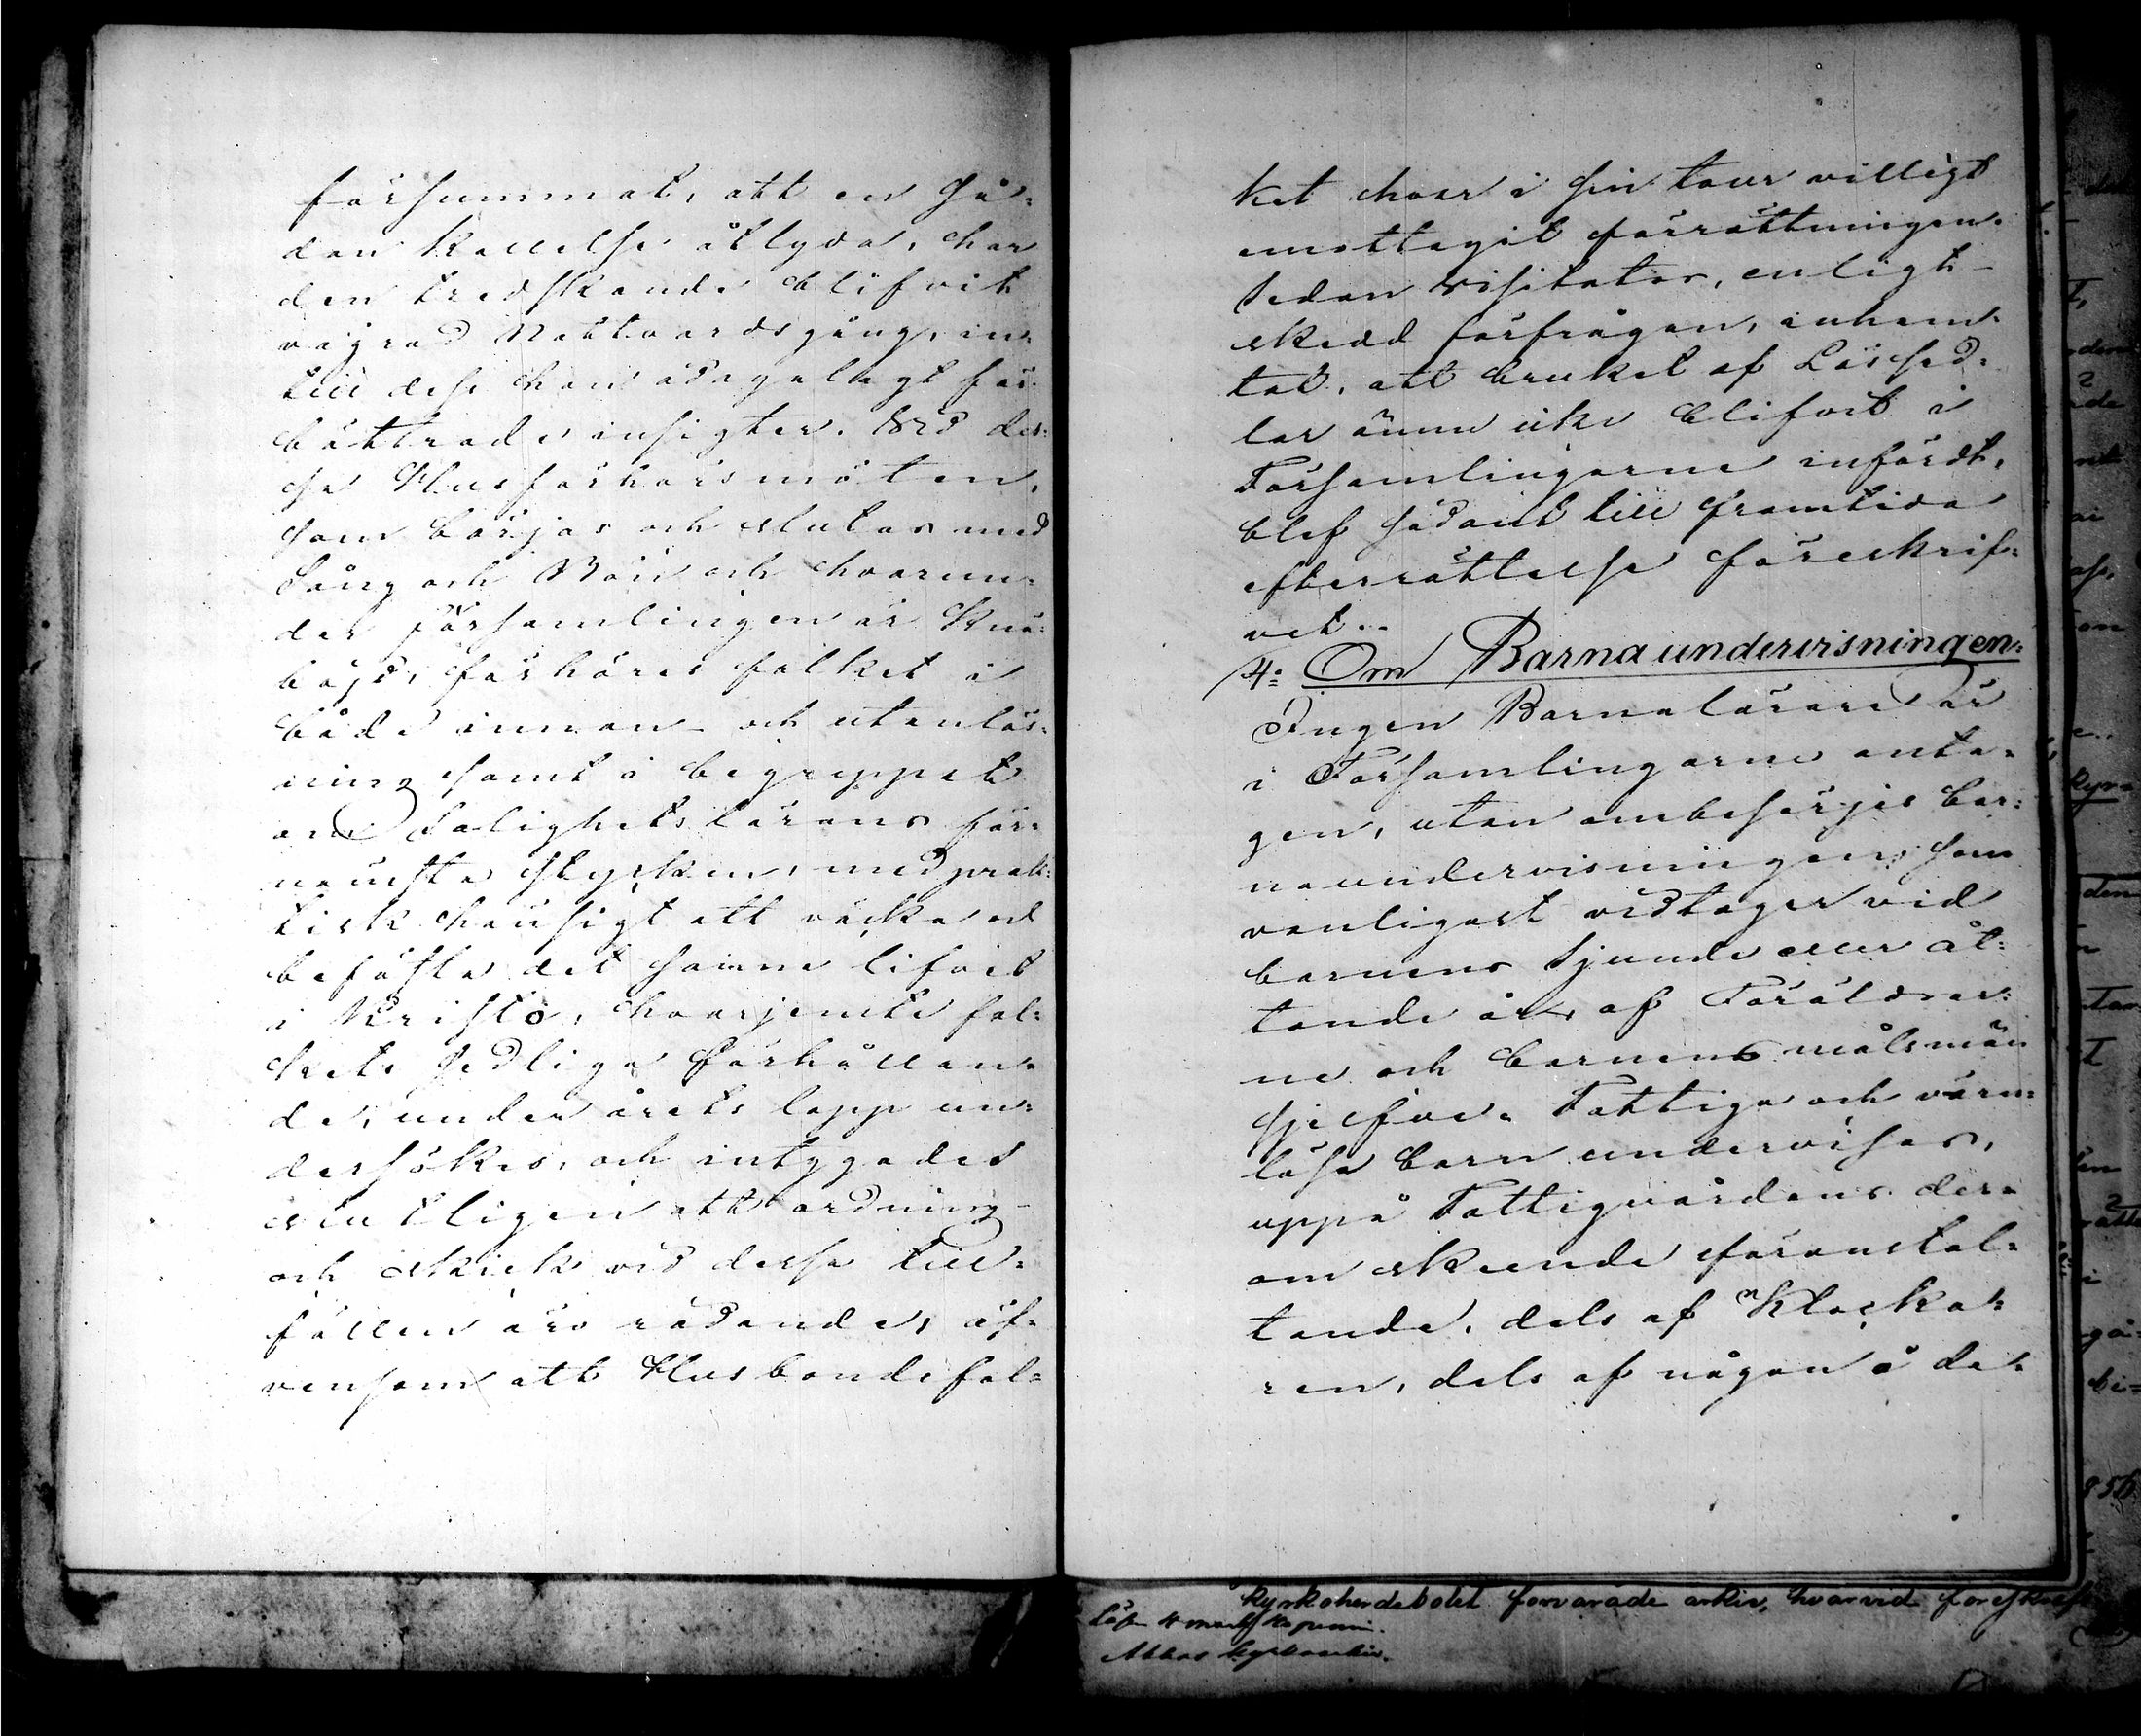 försummat, att en så=
dan kallelse åtlyda, har
den tredskande blifvit
vägrad Nattvardsgång, in=
till dess han ådagalagt för=
bättrade insigter. Vid des=
sa Husförhörsmöten,
som börjas och slutas med
Sång och Bön och hvarun=
der församlingen är knä=
böjd, förhöres folket i
både innan- och utanläs=
ning samt i begreppet
om Salighetslärans för=
nämsta stycken, med prak=
tisk hänsigt att väcka och
befästa det sanna lifvet
i Kristo, hvarjemte fol=
kets sedliga förhållan=
de, under årets lopp un=
dersökes, och intygades
enkligen att ordning
och skick vid dessa till=
fällen äro rådande, äf=
vensom att Husbondefol=
ket hvar i sin tour villigt
emottagit förrättningen.
Sedan Visitator, enligt
skedd förfrågan, inhem=
tat, att bruket af Lässed=
lar ännu icke blifvit i
Församlingarne infördt,
blef sådant till framtida
efterrättelse föreskrif=
vet.
4: Om Barnaundervisningen.
Ingen Barnalärare är
i Församlingarne anta=
gen, utan ombesörjes bar=
naundervisningen, som
vanligast vidtager vid
barnens sjunde eller åt=
tonde år, af Föräldrar=
ne och barnens målsmän
sjelfve. Fattiga och värn=
lösa barn undervisas,
uppå Fattigvårdens der=
om skeende föranstal=
tande, dels af Klocka=
ren, dels af någon å de=
kyrkoherdebolet förvarade arkiv, hvarvid föreskrefs